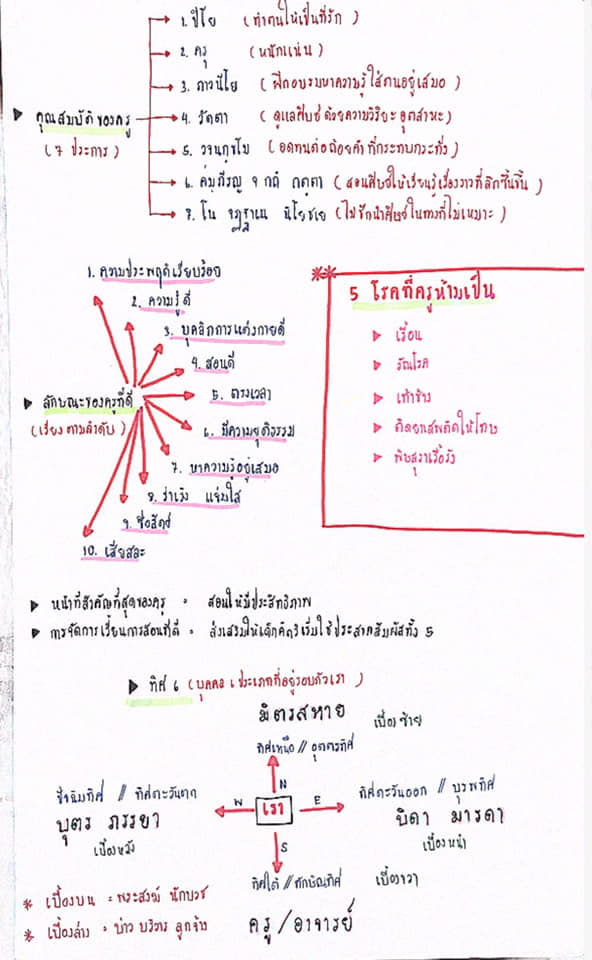 1. ปิโย (ทำตนให้เป็นที่รัก)
2. ครุ (หนักแน่น)
3. ภาวนีโย (ฝึกอบรมหาความรู้ใส่ตนอยู่เสมอ)
▶ คุณสมบัติของครู
(7 ประการ)
4. วัตตา (ดูแลศิษย์ด้วยความวิริยะ อุตสาหะ)
5. วจนกฺขโม (อดทนต่อถ้อยคำที่กระทบกระทั่ง)
6. คมฺภีรญฺ จ กถํ กตฺตา (สอนศิษย์ให้เรียนรู้เรื่องราวที่ลึกซึ้งขึ้น)
7. โน จฏฺฐาเน นิโยชเย (ไม่ชักนำศิษย์ในทางที่ไม่เหมาะ)
▶ ลักษณะของครูที่ดี
(เรียงตามลำดับ)
1. ความประพฤติเรียบร้อย
2. ความรู้ดี
3. บุคลิกการแต่งกายดี
4. สอนดี
5. ตรงเวลา
6. มีความยุติธรรม
7. หาความรู้อยู่เสมอ
8. ร่าเริง แจ่มใส
9. ซื่อสัตย์
10. เสียสละ
** 5 โรคที่ครูห้ามเป็น
▶ เรื้อน
▶ วัณโรค
▶ เท้าช้าง
▶ ติดยาเสพติดให้โทษ
▶ พิษสุราเรื้อรัง
▶ หน้าที่สำคัญที่สุดของครู = สอนให้มีประสิทธิภาพ
▶ การจัดการเรียนการสอนที่ดี = ส่งเสริมให้เด็กคิดริเริ่มใช้ประสาทสัมผัสทั้ง 5
▶ ทิศ 6 (บุคคล 6 ประเภทที่อยู่รอบตัวเรา)
มิตรสหาย เบื้องซ้าย
ทิศเหนือ // อุตตรทิศ
N
ปัจฉิมทิศ // ทิศตะวันตก
บุตร ภรรยา
เบื้องหลัง
W เรา E
ทิศตะวันออก // บูรพทิศ
บิดา มารดา
เบื้องหน้า
S
ทิศใต้ // ทักษิณทิศ เบื้องขวา
ครู / อาจารย์
* เบื้องบน = พระสงฆ์ นักบวช
* เบื้องล่าง = บ่าว บริวาร ลูกจ้าง